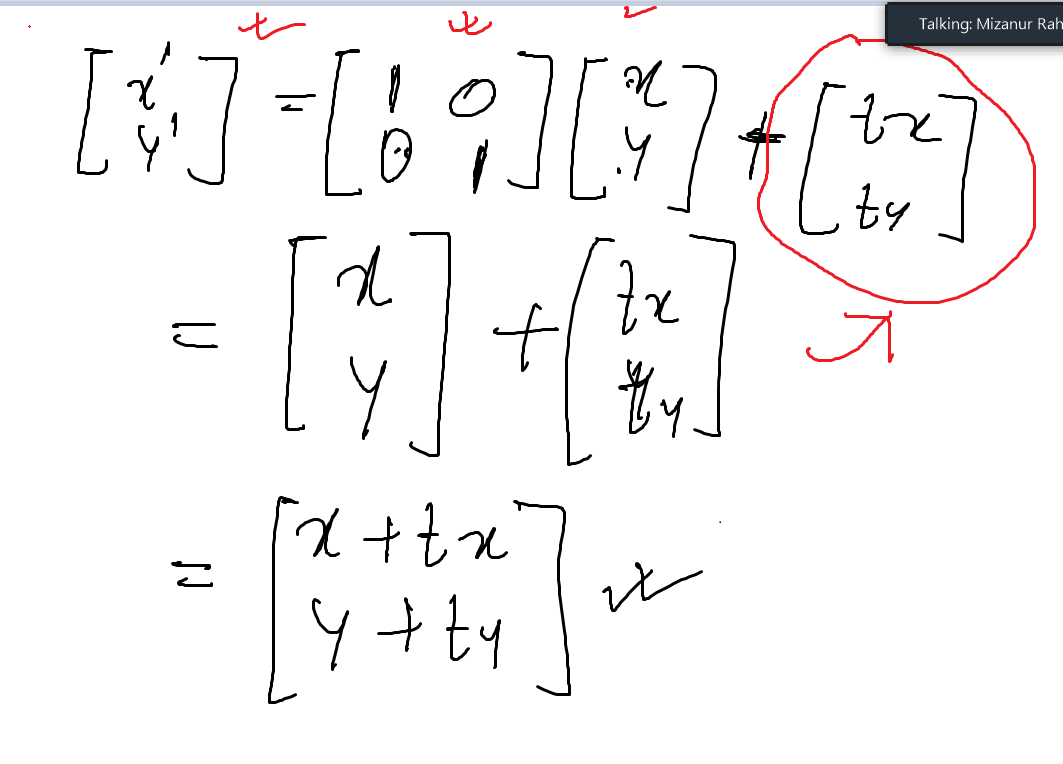 Talking: Mizanur Rah
[x' y'] = [1 0 0 1] [x y] + [tx ty]
= [x y] + [tx ty]
= [x + tx y + ty]